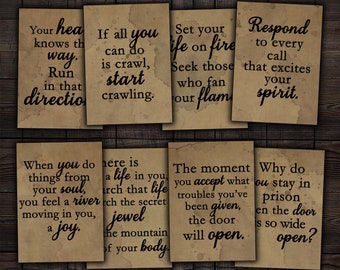 Your hea
knows th
way.
Run
in that
direction
If all you
can do
is crawl,
start
crawling.
Set your
life on fire
Seek those
who fan
your flame
Respond
to every
call
that excites
your
spirit.
When you do
things from
your soul,
you feel a river
moving in you,
a joy.
here is
a life in you,
arch that life
rch the secret
jewel
the mountain
of your body.
The moment
you accept what
troubles you've
been given,
the door
will open.
Why do
you stay in
prison
en the door
is so wide
open?